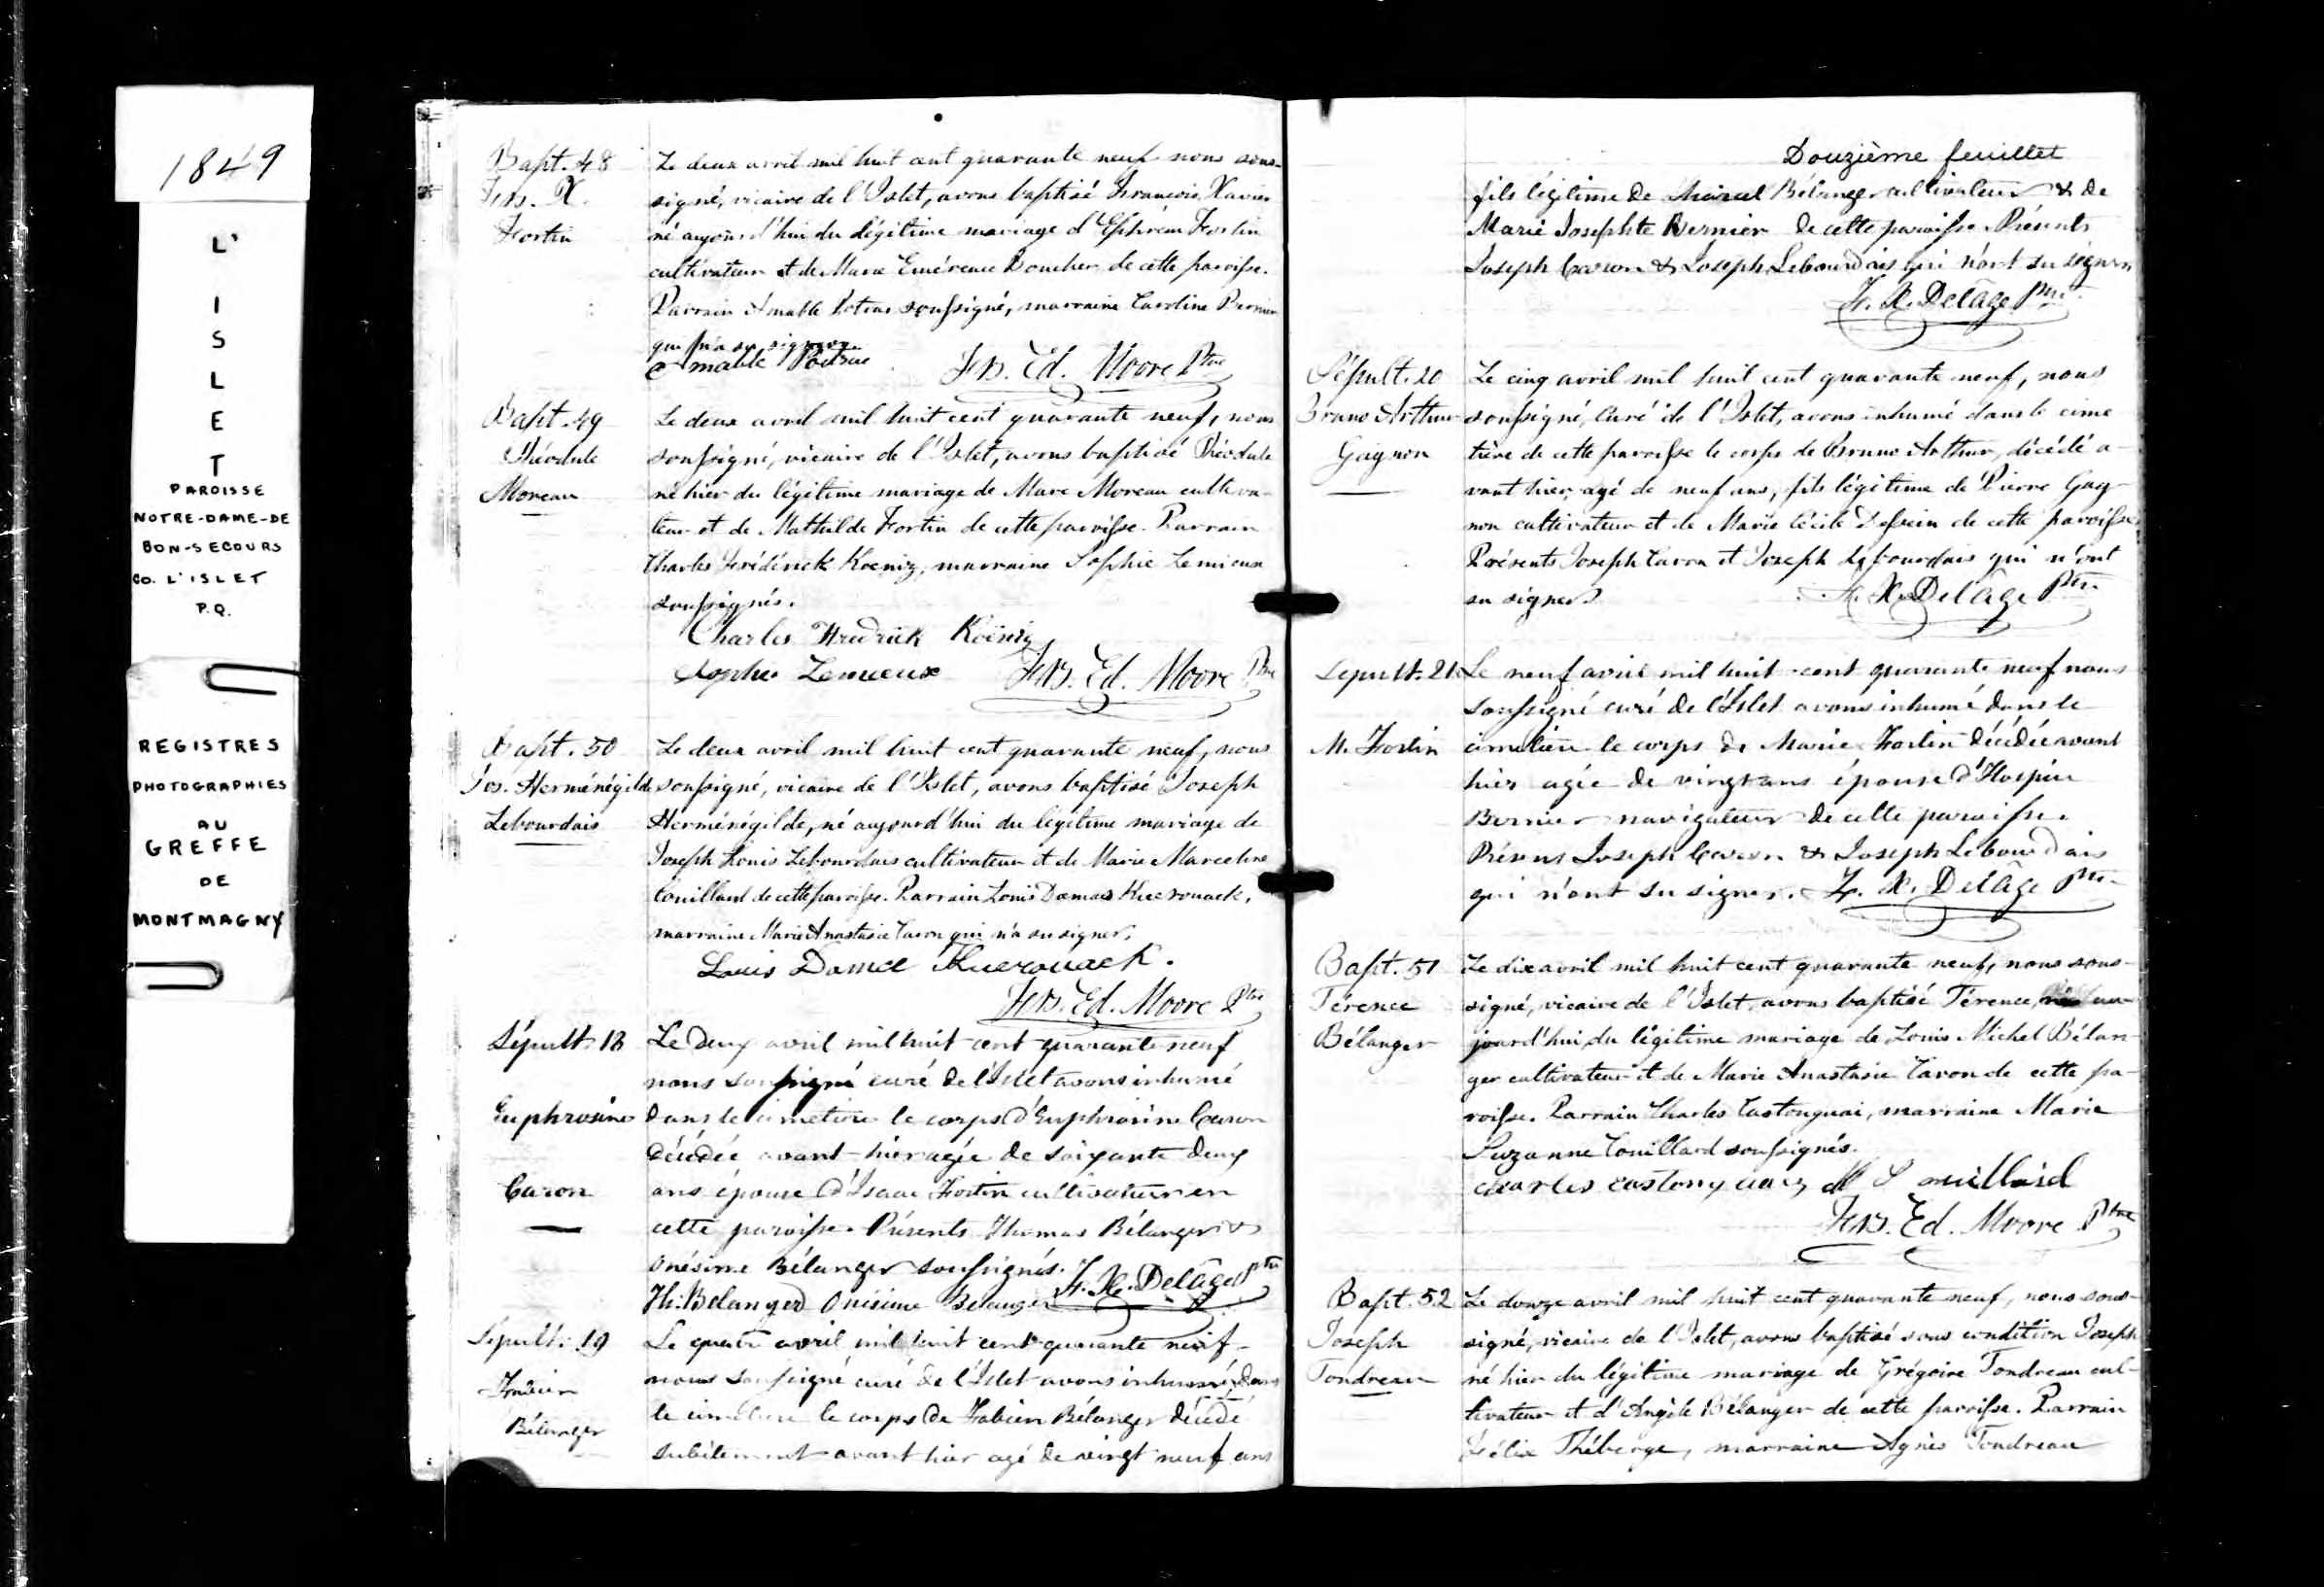 1849
L'
I
S
L
E
T
PAROISSE
NOTRE-DAME-DE
BON-SECOURS
CO. L'ISLET
P.Q.
REGISTRES
PHOTOGRAPHIES
AU
GREFFE
DE
MONTMAGNY
Bapt. 48
Frs. X.
Fortin
Le deux avril mil huit cent quarante neuf nous sous-
signé, vicaire de l'Islet, avons baptisé François Xavier
né aujourd'hui du légitime mariage d'Ephrem Fortin
cultivateur et de Marie Emérence Boucher de cette paroisse.
Parrain Amable Potras soussigné, marraine Caroline Bernier
qui n'a su signer.
Amable Poitras Frs. Ed. Moore Ptre
Bapt. 49
Théodule
Moreau
Le deux avril mil huit cent quarante neuf, nous
soussigné, vicaire de l'Islet, avons baptisé Théodule
né hier du légitime mariage de Marc Moreau cultiva-
teur et de Mathilde Fortin de cette paroisse. Parrain
Charles Frédérick Koenig, marraine Sophie Lemieux
soussignés.
Charles Fredrick Koënig
Sophie Lemieux Frs. Ed. Moore Ptre
Bapt. 50
Jos. Herménégilde
Lebourdais
Le deux avril mil huit cent quarante neuf, nous
soussigné, vicaire de l'Islet, avons baptisé Joseph
Herménégilde, né aujourd'hui du légitime mariage de
Joseph Louis Lebourdais cultivateur et de Marie Marceline
Couillard de cette paroisse. Parrain Louis Damase Kuerouack,
marraine Marie Anastasie Caron qui n'a su signer.
Louis Damce Kuerouack.
Frs. Ed. Moore Ptre
Sépult. 18
Euphrosine
Caron
Le deux avril mil huit cent quarante neuf
nous soussigné curé de l'Islet avons inhumé
dans le cimetière le corps d'Euphrosine Caron
décédée avant-hier agée de soixante deux
ans épouse d'Isaac Fortin cultivateur en
cette paroisse. Présents Thomas Bélanger &
Onésime Bélanger soussignés. F. X. Delâge Ptre
Th: Belanger Onésime Belanger
Sépult: 19
Fabien
Bélanger
Le quatre avril mil huit cent quarante neuf
nous soussigné curé de l'Islet avons inhumé dans
le cimetière le corps de Fabien Bélanger décédé
subitement avant hier agé de vingt neuf ans
Douzième feuillet
fils légitime de Marcel Bélanger cultivateur & de
Marie Josephte Bernier de cette paroisse. Présents
Joseph Caron & Joseph Lebourdais qui n'ont su signer
F. X. Delâge Ptre
Sépult. 20
Bruno Arthur
Gagnon
Le cinq avril mil huit cent quarante neuf, nous
soussigné, Curé de l'Islet, avons inhumé dans le cime
tière de cette paroisse le corps de Bruno Arthur, décédé a-
vant hier, agé de neuf ans, fils légitime de Pierre Gag-
non cultivateur et de Marie Cécile de cette paroisse
Présents Joseph Caron et Joseph Lebourdais qui n'ont
su signer. F. X. Delâge Ptre
Sepult. 21
M. Fortin
Le neuf avril mil huit cent quarante neuf nous
soussigné curé de l'Islet avons inhumé dans le
cimetière le corps de Marie Fortin décédée avant
hier agée de vingt ans épouse d'Hospice
Bernier navigateur de cette paroisse.
Présens Joseph Caron & Joseph Lebourdais
qui n'ont su signer. F. X. Delâge Ptre
Bapt. 51
Térence
Bélanger
Le dix avril mil huit cent quarante neuf, nous sous-
signé, vicaire de l'Islet, avons baptisé Térence, né au-
jourd'hui du légitime mariage de Louis Michel Bélan-
ger cultivateur et de Marie Anastasie Caron de cette pa-
roisse. Parrain Charles Castonguai, marraine Marie
Suzanne Couillard soussignés.
Charles Castonguay M S Couillard
Frs. Ed. Moore Ptre
Bapt. 52
Joseph
Tondreau
Le douze avril mil huit cent quarante neuf, nous sous-
signé, vicaire de l'Islet, avons baptisé sous condition Joseph
né hier du légitime mariage de Grégoire Tondreau cul-
tivateur et d'Angèle Bélanger de cette paroisse. Parrain
Félix Théberge, marraine Agnès Tondreau